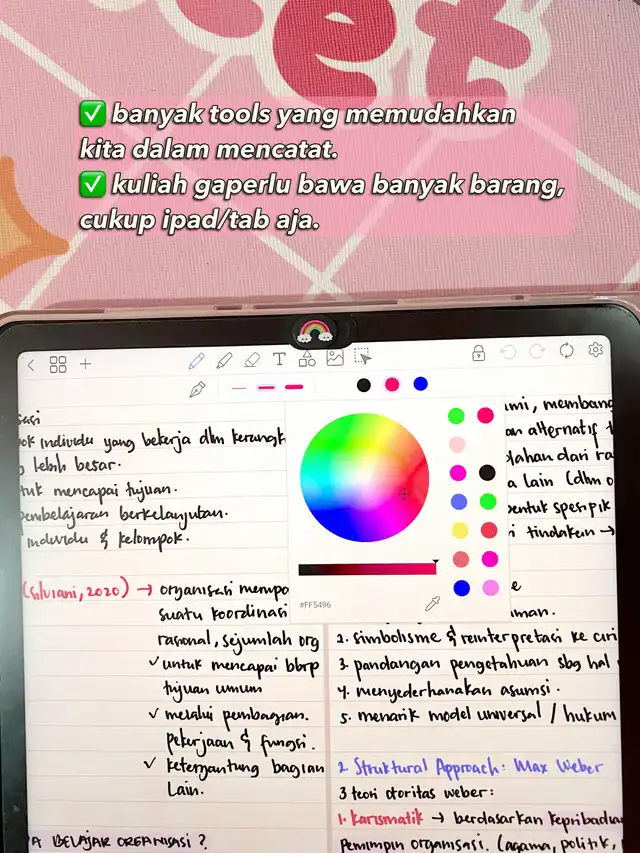 et
✅ banyak tools yang memudahkan
kita dalam mencatat.
✅ kuliah gaperlu bawa banyak barang,
cukup ipad/tab aja.
T
sasi
ok individu yang bekerja dlm kerangk
lebih besar.
tuk mencapai tujuan.
pembelajaran berkelanjutan.
Individu & kelompok.
(Silviani, 2020) → organisasi mempo
suatu koordinasi
rasional, sejumlah org
✓ untuk mencapai bbrp
tujuan umum
✓ melalui pembagian.
pekerjaan & fungsi.
✓ ketergantung bagian
Lain.
A BELAJAR ORGANISASI ?
#FF5496
mi, membang
an alternatif t
lahan dari ra
a lain (dlm o
bentuk spesipik
i tindakan →
e
aman.
2. simbolisme & reinterpretasi ke ciri
3. pandangan pengetahuan sbg hal
4. menyederhanakan asumsi.
5. menarik model universal / hukum
2 Structural Approach: Max Weber
3 teori otoritas weber:
1. karismatik → berdasarkan kepribadia
pemimpin organisasi. (agama, politik,